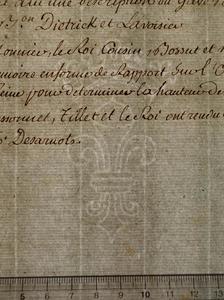 une description du
rs. on Dietrick et Lavoisier
onnier, le Roi Cousin Bossut et
moire en forme de Rapport Sur l
Seine pour determiner la hauteur de
sonnet, Tillet et le Roi ont rendu
Desarnots.
5 6 7 8 9 10 11 12 13